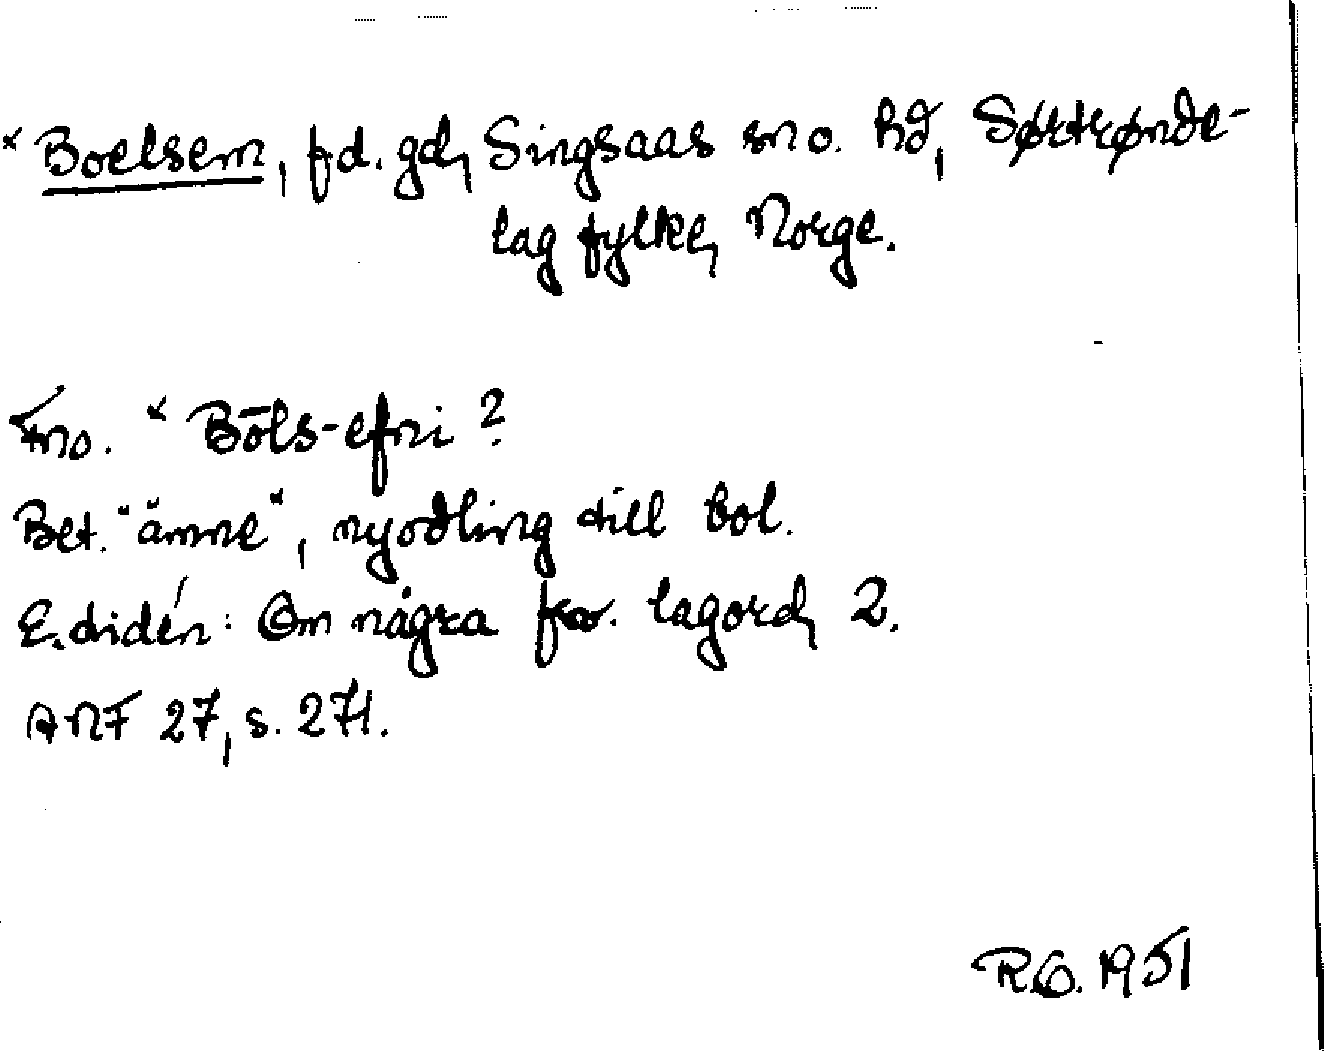 * Boelsem, fd. gd, Singsaas sn o. hd, Sørtrønde-
lag fylke, Norge.
Fno. * Bōls-efni ?
Bet. "ämne", nyodling till bol.
E. Lidén: Om några fno. lagord, 2.
ANF 27, s. 271.
R.O. 1951